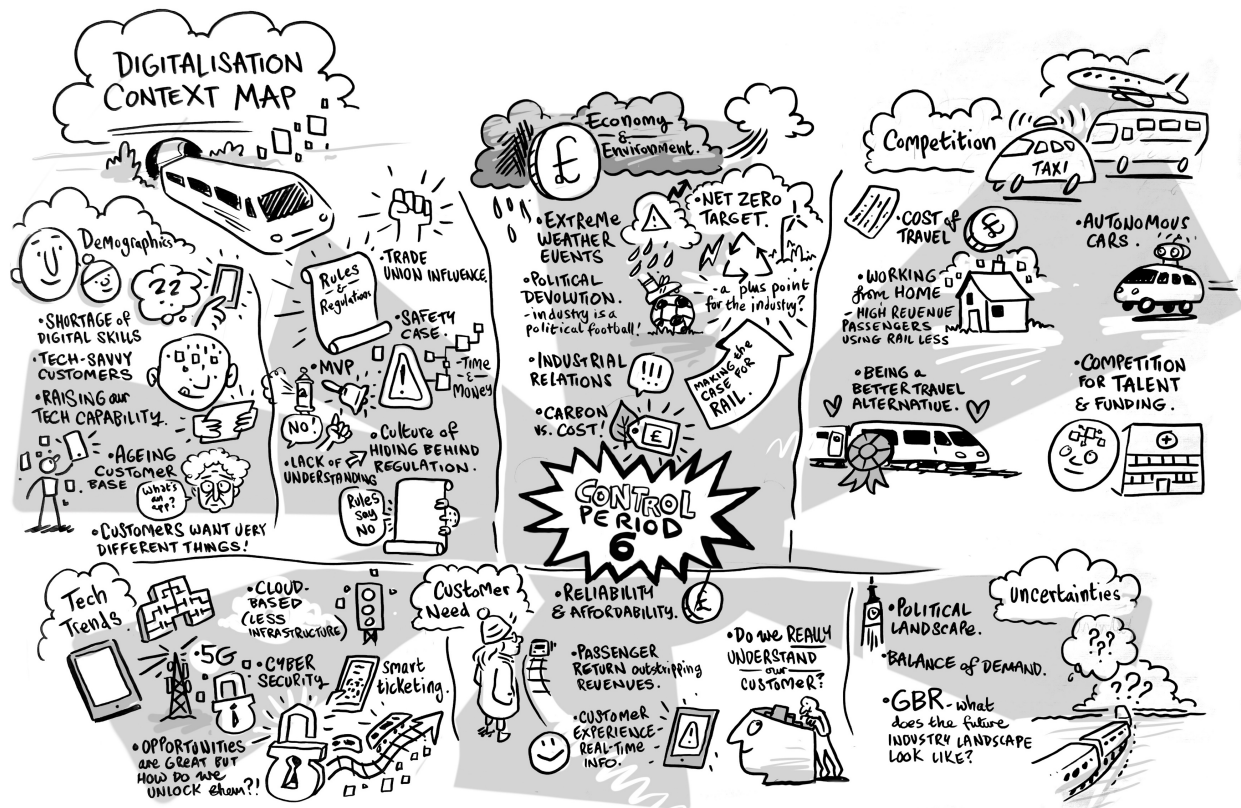 DIGITALISATION
CONTEXT MAP
Demographics
??
• SHORTAGE of
DIGITAL SKILLS
• TECH-SAVVY
CUSTOMERS
• RAISING our
TECH CAPABILITY.
• AGEING
CUSTOMER
BASE
What's
an
app?
• CUSTOMERS WANT VERY
DIFFERENT THINGS!
• TRADE
UNION INFLUENCE.
Rules
&
Regulations
• SAFETY
CASE.
- Time
&
Money
• MVP
NO!
• LACK of
UNDERSTANDING
• Culture of
HIDING BEHIND
REGULATION.
Rules
SAY
NO
Economy
&
Environment.
£
• EXTREME
WEATHER
EVENTS
• POLITICAL
DEVOLUTION.
- industry is a
political football!
• INDUSTRIAL
RELATIONS
!!!
• CARBON
vs. COST!
£
• NET ZERO
TARGET.
- a plus point
for the industry?
MAKING the
CASE FOR
RAIL.
CONTROL
PERIOD
6
Competition
TAXI
• COST of
TRAVEL
£
• WORKING
from HOME
- HIGH REVENUE
PASSENGERS
USING RAIL LESS
• BEING A
BETTER TRAVEL
ALTERNATIVE.
• AUTONOMOUS
CARS.
• COMPETITION
FOR TALENT
& FUNDING.
Tech
Trends
• CLOUD-
BASED
(LESS
INFRASTRUCTURE)
• 5G
• CYBER
SECURITY
Smart
ticketing.
• OPPORTUNITIES
are GREAT BUT
HOW DO we
UNLOCK them?!
Customer
Need
• RELIABILITY
& AFFORDABILITY.
£
• PASSENGER
RETURN outstripping
REVENUES.
• CUSTOMER
EXPERIENCE-
REAL-TIME
INFO.
• Do we REALLY
UNDERSTAND
our
CUSTOMER?
Uncertainties
• POLITICAL
LANDSCAPE.
• BALANCE of DEMAND.
• GBR - what
does the future
INDUSTRY LANDSCAPE
LOOK LIKE?
??
???